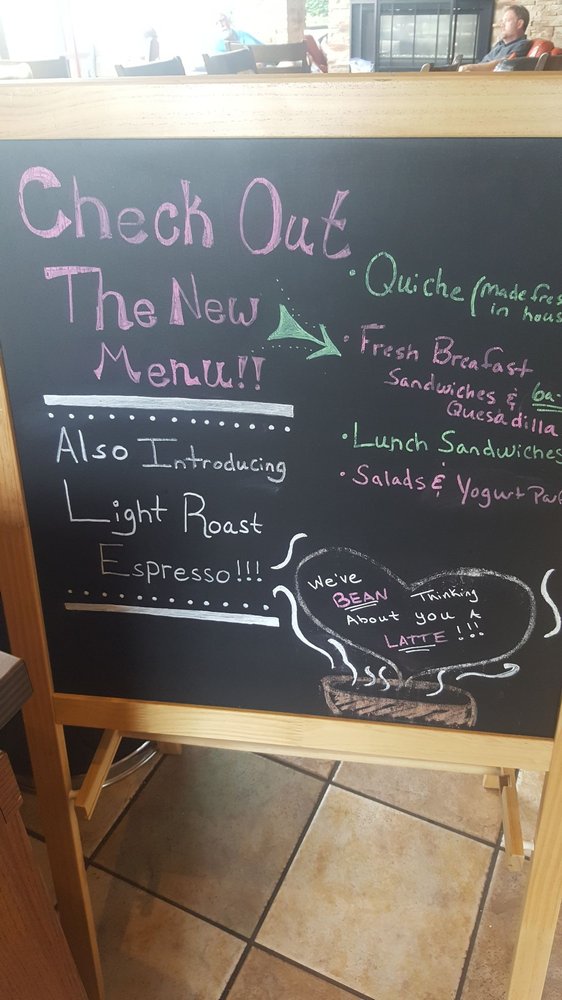 Check Out
The New
Menu!!
Also Introducing
Light Roast
Espresso!!!
• Quiche (Made
in
• Fresh Breafast
Sandwiches &
Quesadilla
• Lunch Sandwiches
• Salads & Yogurt
We've
BEAN Thinking
About you A
LATTE!!!